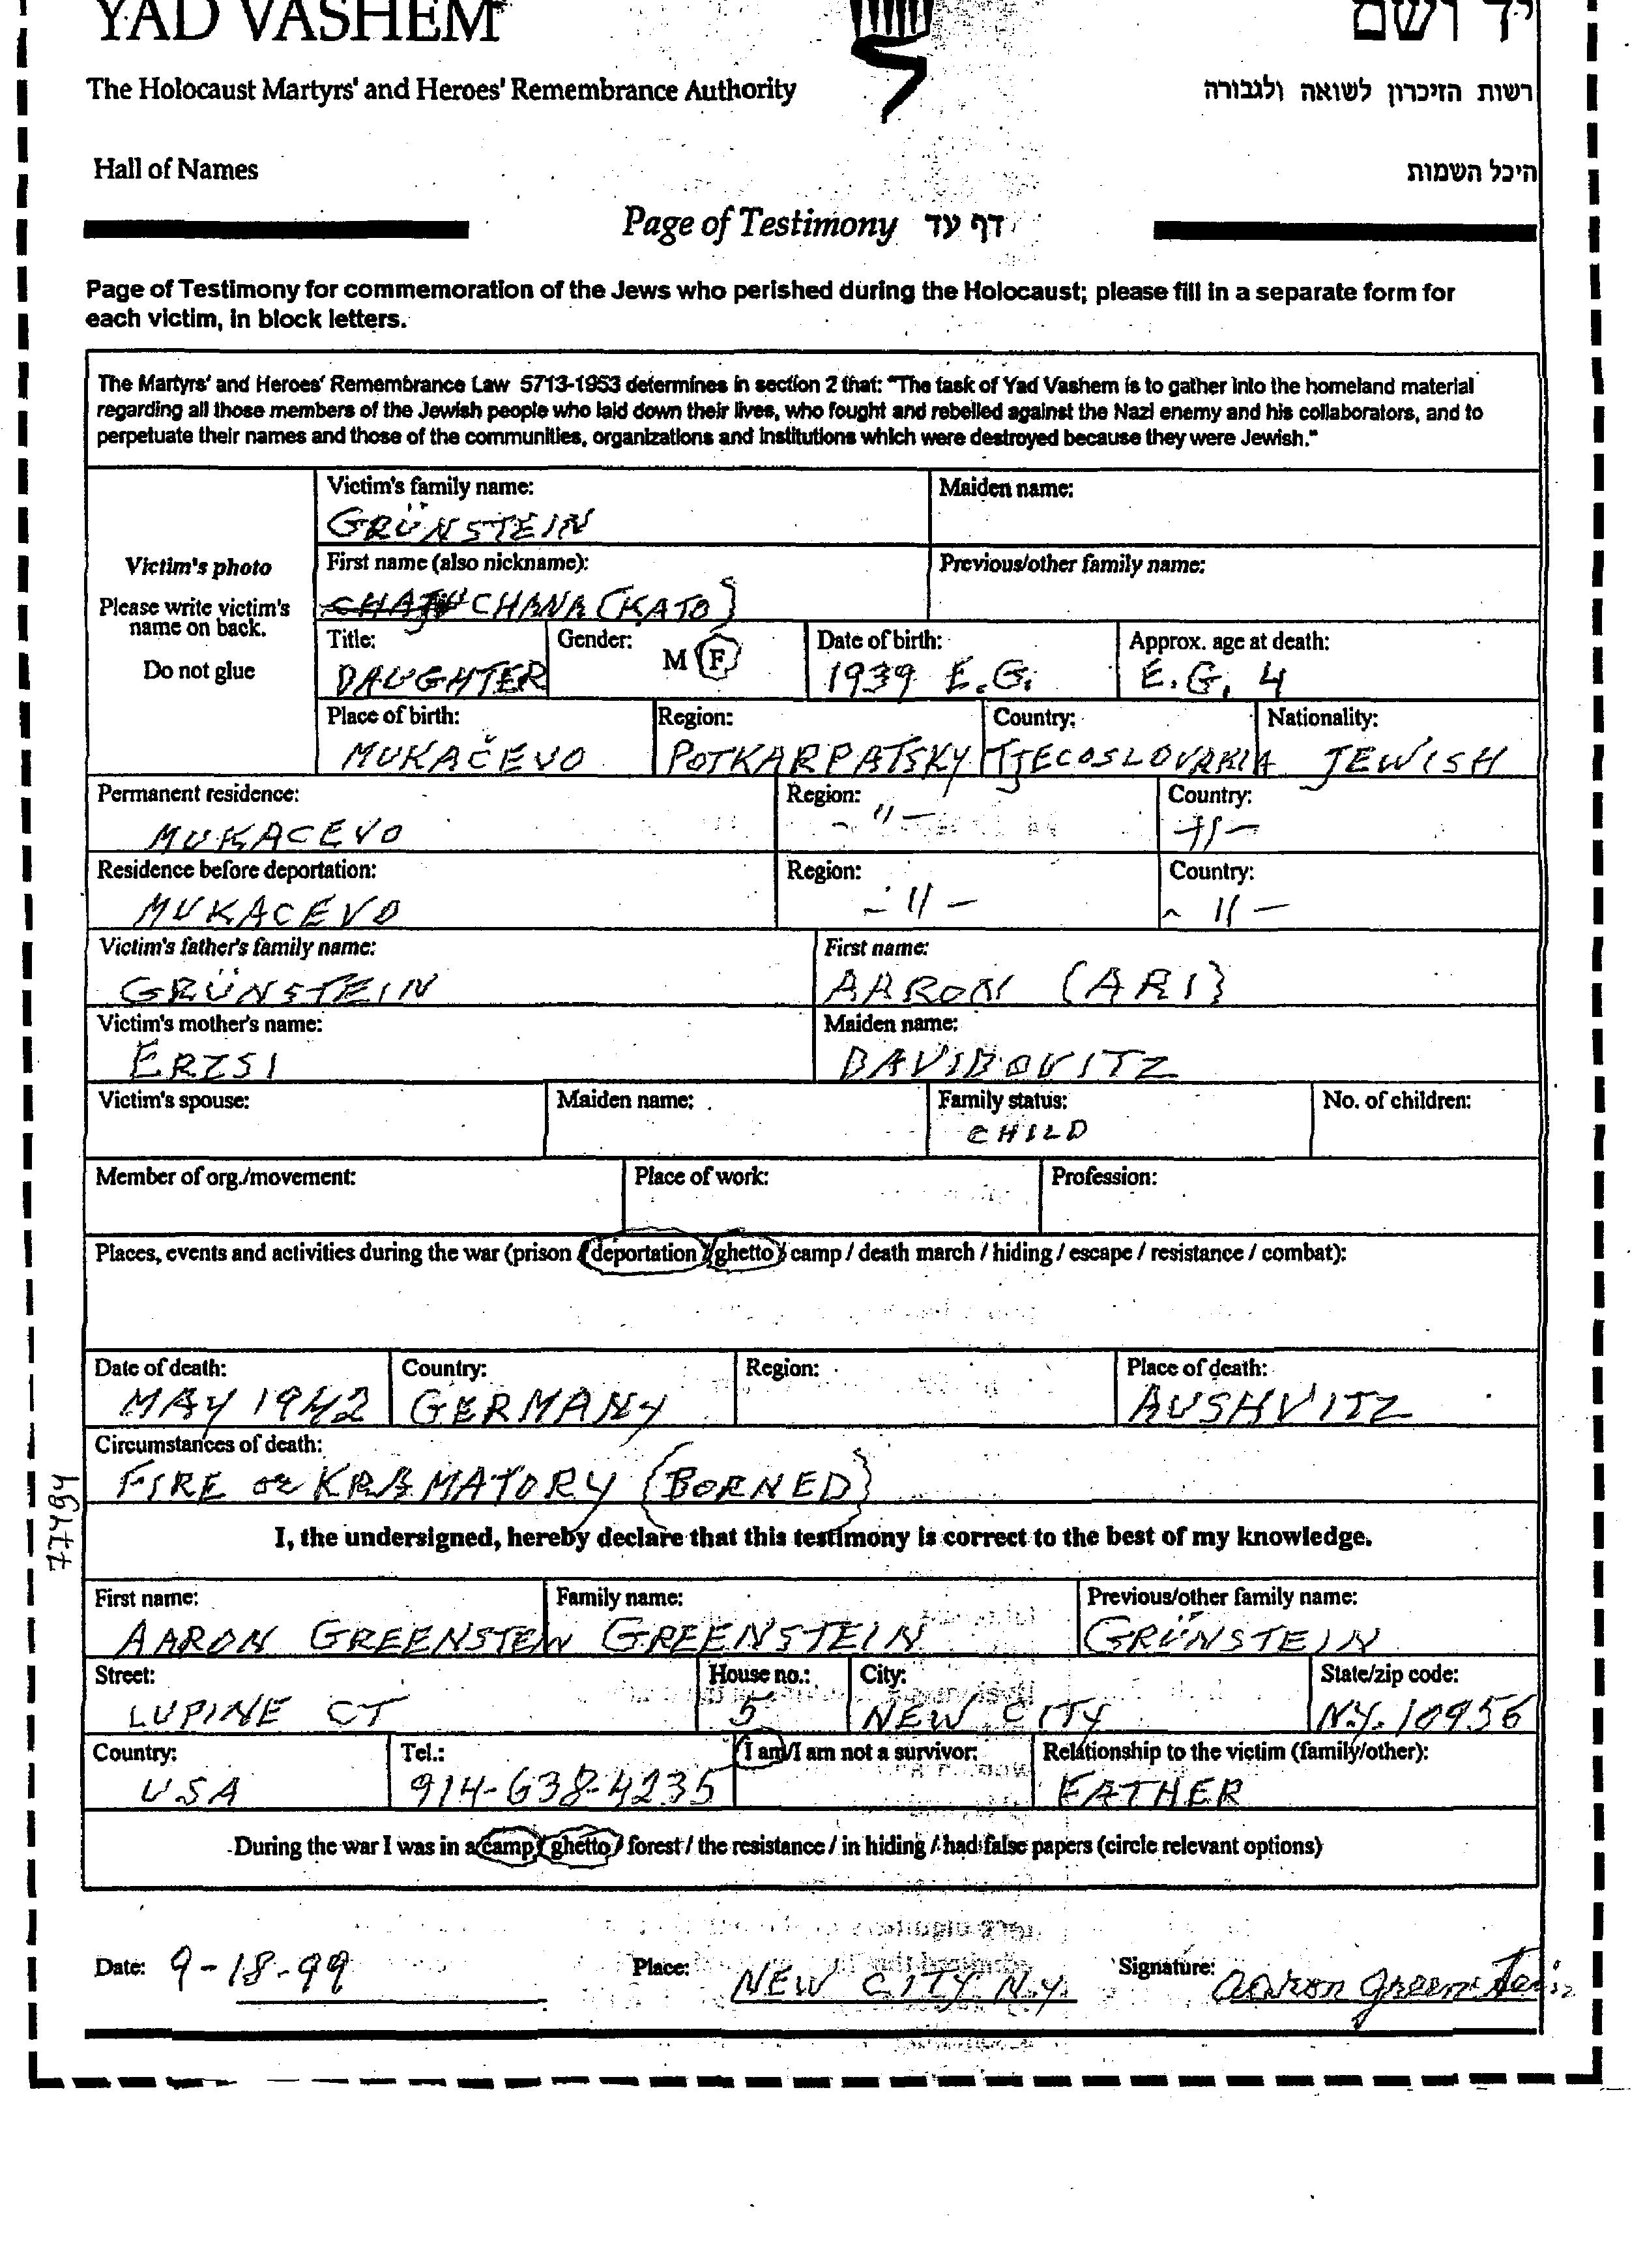 YAD VASHEM יד ושם
The Holocaust Martyrs' and Heroes' Remembrance Authority רשות הזיכרון לשואה ולגבורה
Hall of Names היכל השמות
Page of Testimony דף עד
Page of Testimony for commemoration of the Jews who perished during the Holocaust; please fill in a separate form for
each victim, in block letters.
The Martyrs' and Heroes' Remembrance Law 5713-1953 determines in section 2 that: "The task of Yad Vashem is to gather into the homeland material
regarding all those members of the Jewish people who laid down their lives, who fought and rebelled against the Nazi enemy and his collaborators, and to
perpetuate their names and those of the communities, organizations and institutions which were destroyed because they were Jewish."
Victim's photo
Please write victim's
name on back.
Do not glue
Victim's family name: Maiden name:
GRÜNSTEIN
First name (also nickname): Previous/other family name:
CHANA (KATO)
Title: Gender: M F Date of birth: Approx. age at death:
DAUGHTER 1939 E.G. E.G. 4
Place of birth: Region: Country: Nationality:
MUKAČEVO POTKARPATSKY TJECOSLOVAKIA JEWISH
Permanent residence: Region: Country:
MUKACEVO -"- -"-
Residence before deportation: Region: Country:
MUKACEVO -"- -"-
Victim's father's family name: First name:
GRÜNSTEIN AARON (ARI)
Victim's mother's name: Maiden name:
ERZSI DAVIDOVITZ
Victim's spouse: Maiden name: Family status: No. of children:
CHILD
Member of org./movement: Place of work: Profession:
Places, events and activities during the war (prison / deportation / ghetto / camp / death march / hiding / escape / resistance / combat):
Date of death: Country: Region: Place of death:
MAY 1942 GERMANY AUSHVITZ
Circumstances of death:
FIRE or KREMATORY (BORNED)
77484
I, the undersigned, hereby declare that this testimony is correct to the best of my knowledge.
First name: Family name: Previous/other family name:
AARON GREENSTEIN GREENSTEIN GRÜNSTEIN
Street: House no.: City: State/zip code:
LUPINE CT 5 NEW CITY N.Y. 10956
Country: Tel.: I am/I am not a survivor: Relationship to the victim (family/other):
USA 914-638-4235 FATHER
During the war I was in a camp / ghetto / forest / the resistance / in hiding / had false papers (circle relevant options)
Date: 9-18-99 Place: NEW CITY N.Y. Signature: Aaron Greenstein